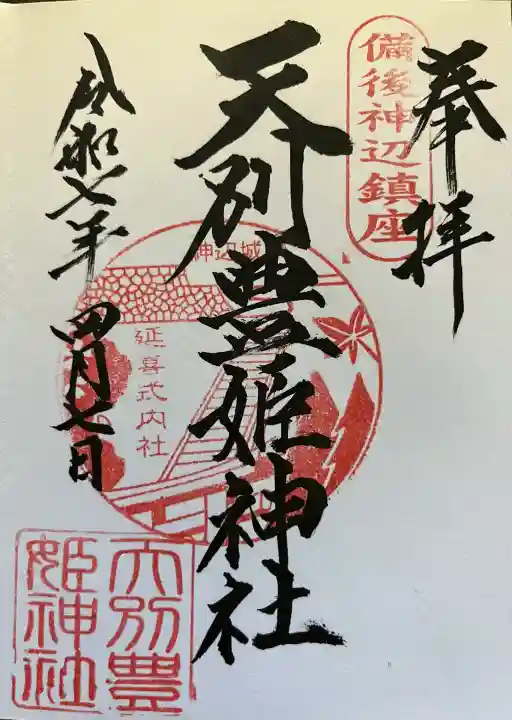 奉拝
備後神辺鎮座
天別豊姫神社
神辺城
延喜式内社
令和七年
四月七日
天別豊
姫神社